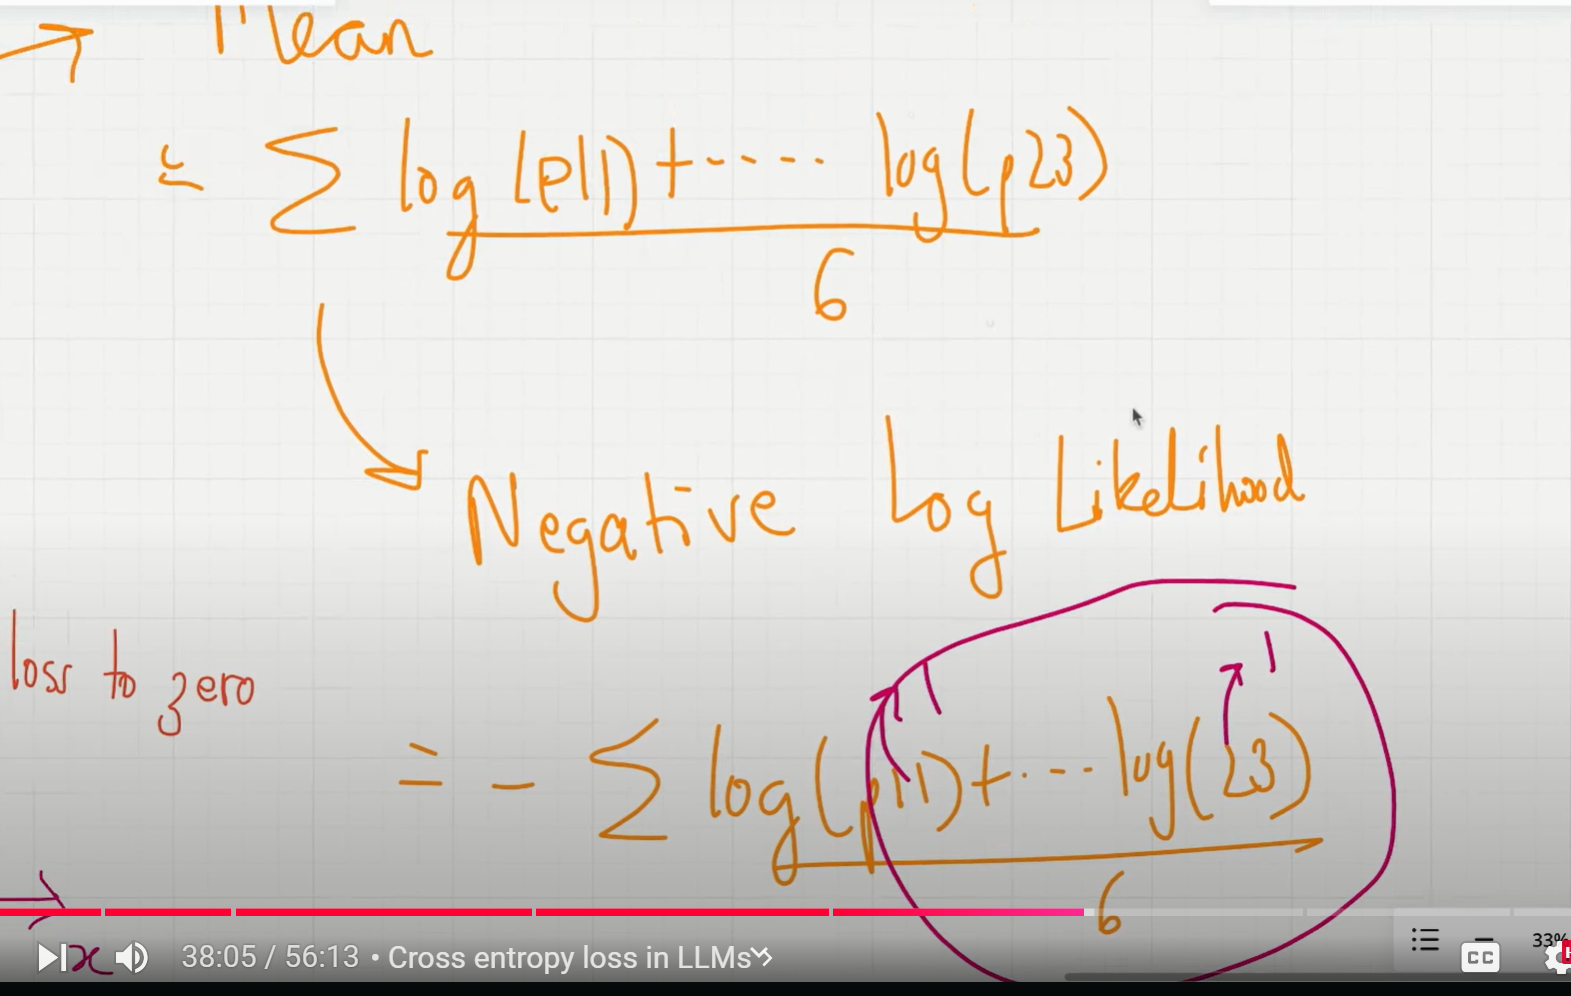 → Mean
= Σ log(p11) + ----- log(p23)
6
Negative Log Likelihood
loss to zero
1 1
= - Σ log(p11) + ---- log(23)
6
x
38:05 / 56:13 • Cross entropy loss in LLMs
CC
33%